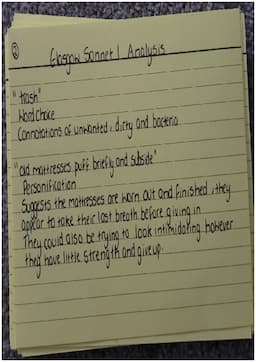 Glasgow Sonnet 1 Analysis
"trash"
Word choice
Connotations of unwanted, dirty and bacteria
"old mattresses puff briefly and subside"
Personification
Suggests the mattresses are worn out and finished, they
appear to take their last breath before giving in
They could also be trying to look intimidating however
they have little strength and give up.